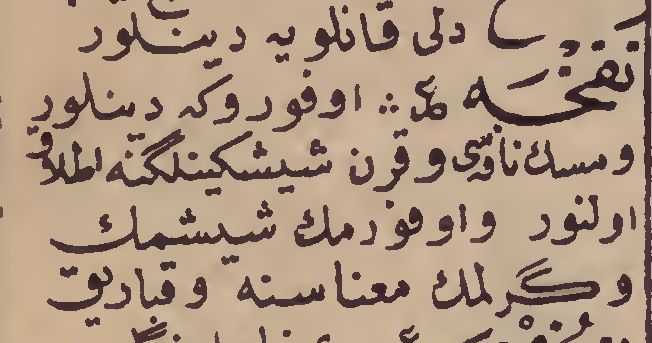 دلی قانلویه دینلور
نفخه ع ؞ اوفوروکه دینلور
ومسك نافه‌سی وقرن شیشكینلگنه اطلاق
اولنور واوفورمك شیشمك
وگرلمك معناسنه وقباریق